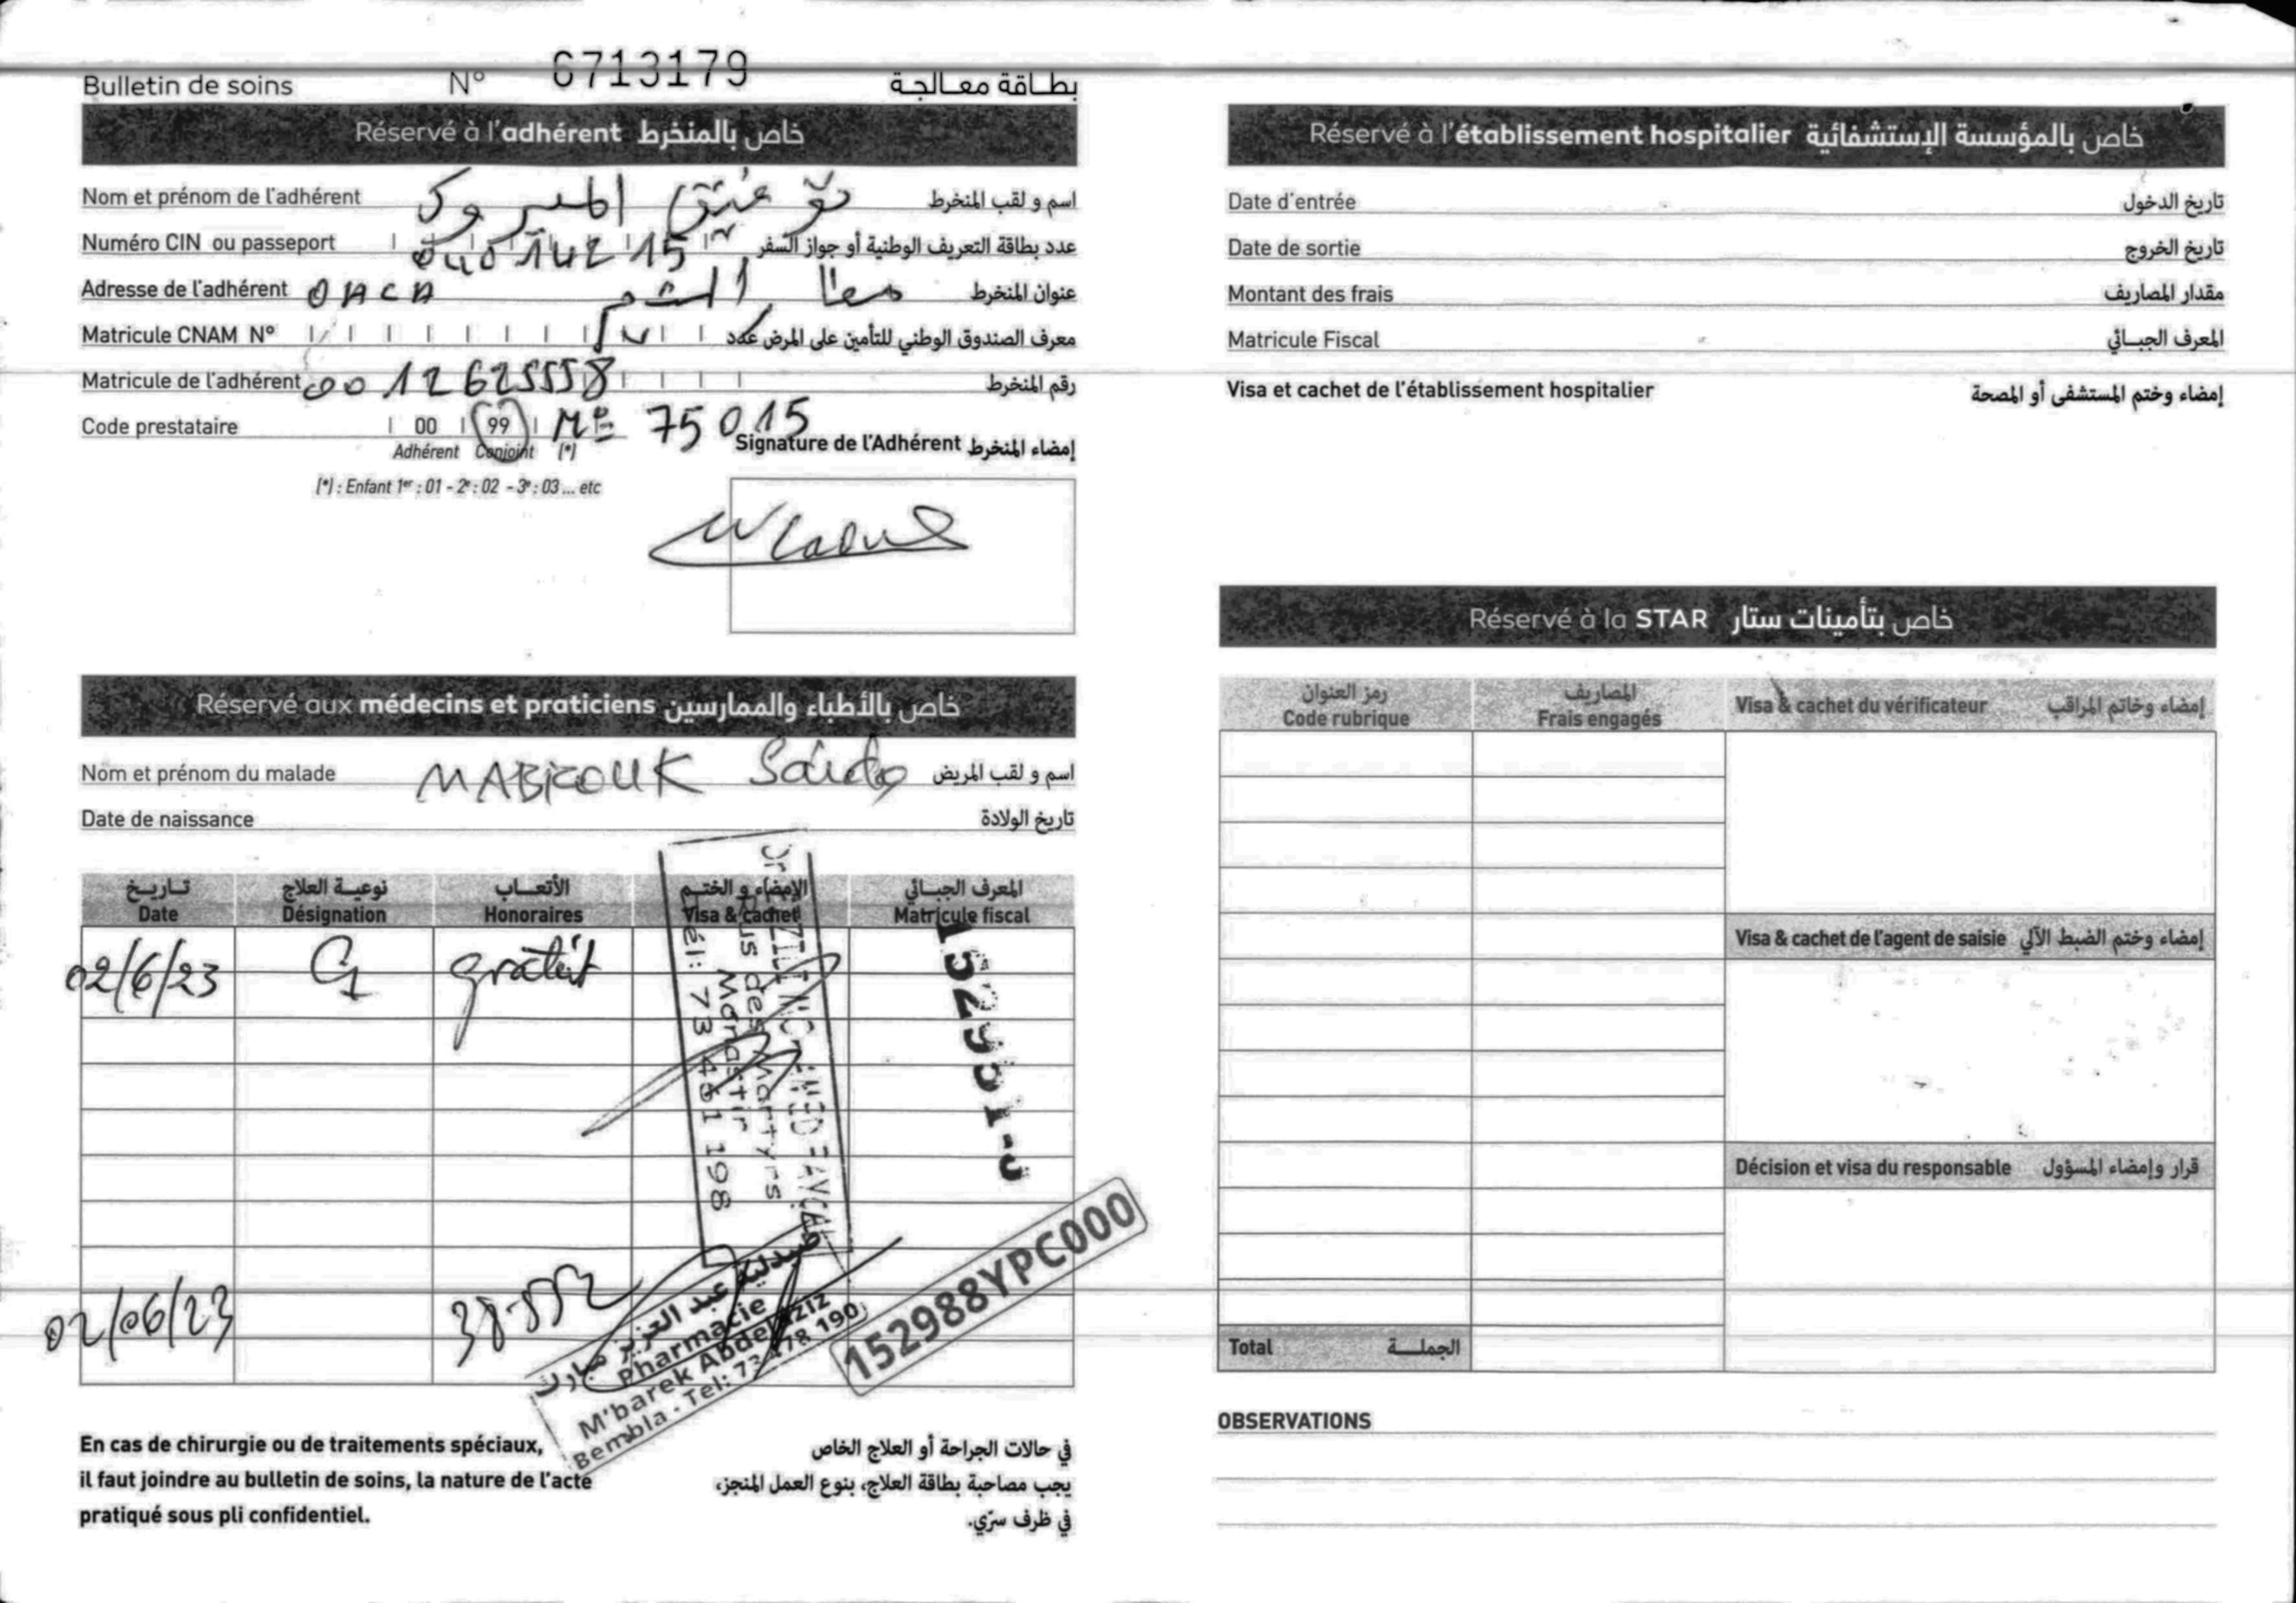 Bulletin de soins N° 6713179 بطاقة معالجة
Réservé à l'adhérent خاص بالمنخرط
Nom et prénom de l'adhérent المبروك اسم و لقب المنخرط
Numéro CIN ou passeport عدد بطاقة التعريف الوطنية أو جواز السفر
Adresse de l'adhérent OACA عنوان المنخرط
Matricule CNAM N° معرف الصندوق الوطني للتأمين على المرض عدد
Matricule de l'adhérent 0012625558 رقم المنخرط
Code prestataire 00 99 Mle 75015
Adhérent Conjoint (*)
Signature de l'Adhérent إمضاء المنخرط
(*) : Enfant 1er : 01 - 2e : 02 - 3e : 03 ... etc
Réservé aux médecins et praticiens خاص بالأطباء والممارسين
Nom et prénom du malade MABROUK Saida اسم و لقب المريض
Date de naissance تاريخ الولادة
تاريخ نوعية العلاج الأتعاب الإمضاء و الختم المعرف الجبائي
Date Désignation Honoraires Visa & cachet Matricule fiscal
02/6/23 C1 gratuit
Rus des Martyrs
Monastir
Tél: 73 461 198
02/06/23
صيدلية عبد العزيز مبارك
Pharmacie
M'barek Abdelaziz
Bembla - Tel: 73 478 190
152988YPC000
En cas de chirurgie ou de traitements spéciaux,
il faut joindre au bulletin de soins, la nature de l'acte
pratiqué sous pli confidentiel.
في حالات الجراحة أو العلاج الخاص
يجب مصاحبة بطاقة العلاج، بنوع العمل المنجز،
في ظرف سرّي.
Réservé à l'établissement hospitalier خاص بالمؤسسة الإستشفائية
Date d'entrée تاريخ الدخول
Date de sortie تاريخ الخروج
Montant des frais مقدار المصاريف
Matricule Fiscal المعرف الجبائي
Visa et cachet de l'établissement hospitalier إمضاء وختم المستشفى أو المصحة
Réservé à la STAR خاص بتأمينات ستار
رمز العنوان المصاريف
Code rubrique Frais engagés Visa & cachet du vérificateur إمضاء وخاتم المراقب
Visa & cachet de l'agent de saisie إمضاء وختم الضبط الآلي
Décision et visa du responsable قرار وإمضاء المسؤول
Total الجملة
OBSERVATIONS